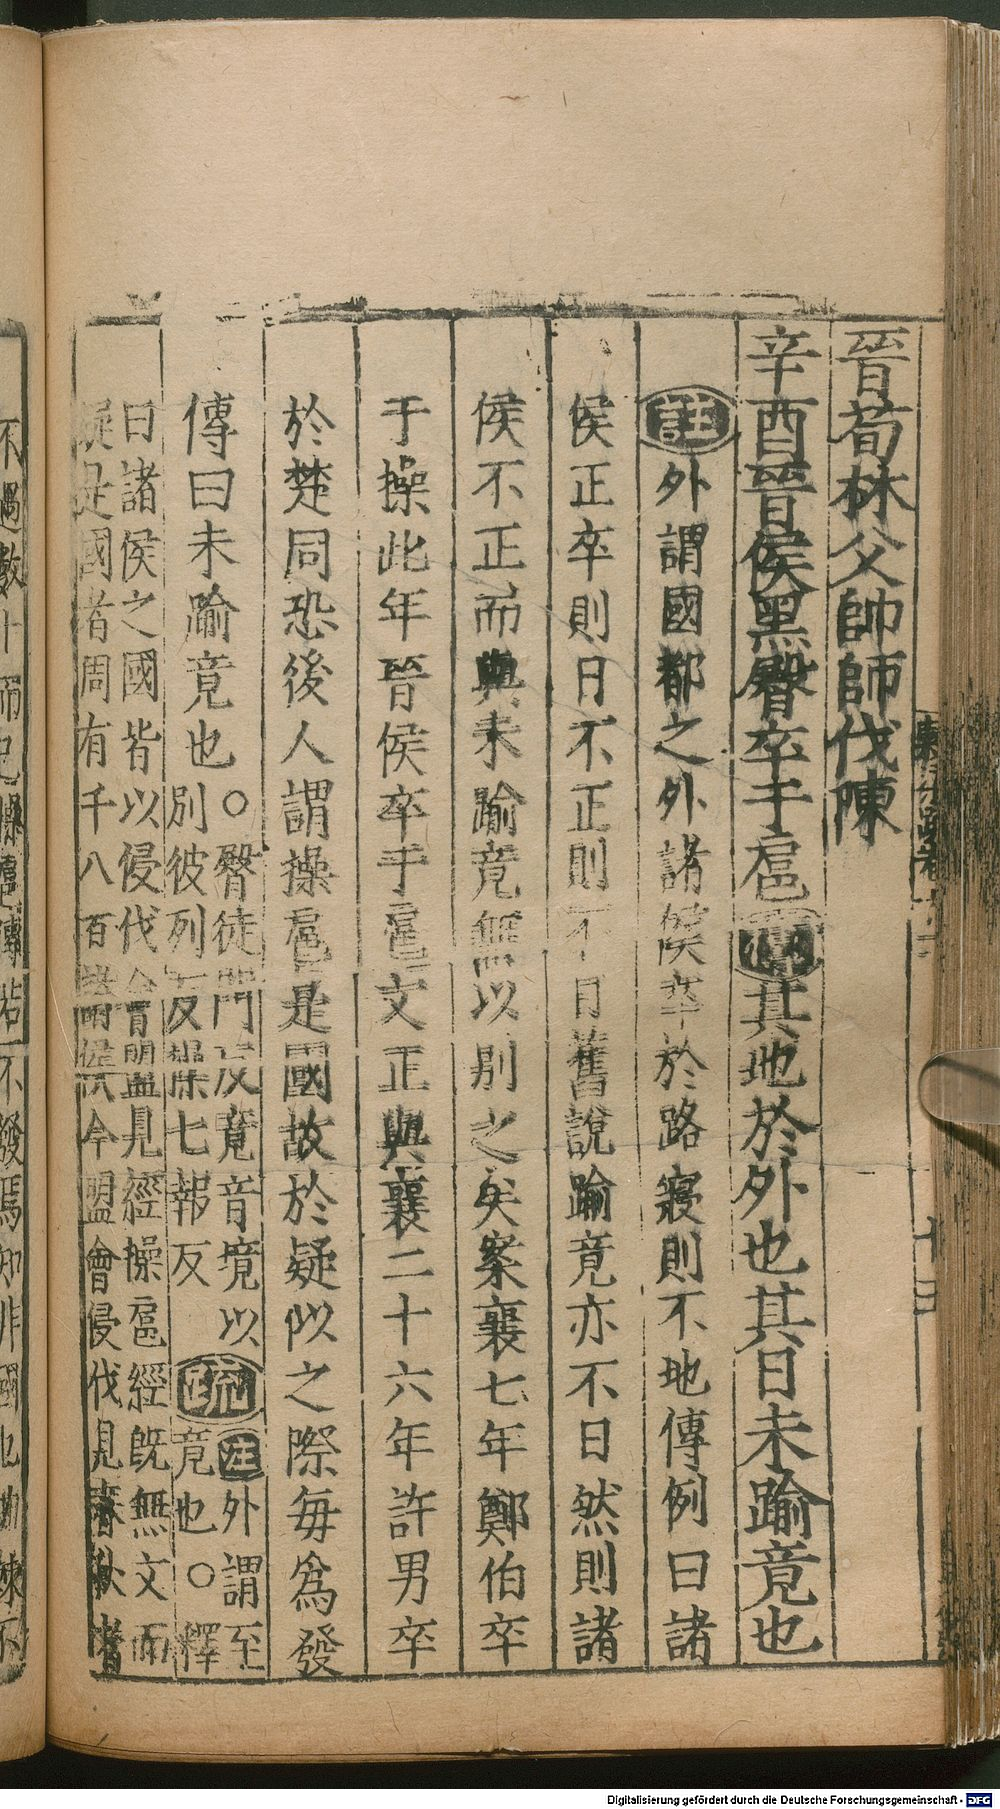 晉荀林父帥師伐陳
辛酉晉侯黑臀卒于扈傳其地於外也其日未踰竟也
註外謂國都之外諸侯卒於路寢則不地傳例曰諸
侯正卒則日不正則不日舊說踰竟亦不日然則諸
侯不正而與未踰竟無以別之矣案襄七年鄭伯卒
于操此年晉侯卒于扈文正與襄二十六年許男卒
於楚同恐後人謂操扈是國故於疑似之際每為發
傳曰未踰竟也○臀徒門反竟音境以
別彼列反操七報反疏註外謂至
竟也○釋
曰諸侯之國皆以侵伐會盟見經操扈經既無文而
疑是國者周有千八百諸侯今盟會侵伐見春秋者
十三
不過數十而已操扈傳若不發焉知非國也
Digitalisierung gefördert durch die Deutsche Forschungsgemeinschaft - DFG